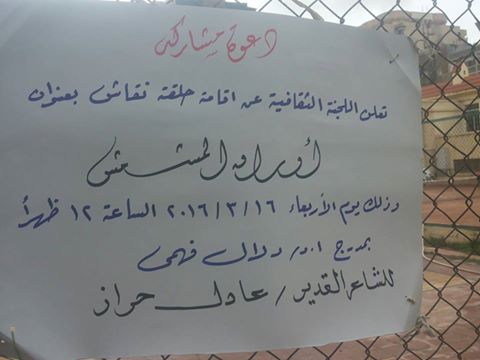 دعوة مشاركه
تعلن اللجنة الثقافية عن اقامة حلقة نقاش بعنوان
أوراق المشمش
وذلك يوم الأربعاء ٢٠١٦/٣/١٦ الساعة ١٢ ظهرأ
بمدرج ا.د/ دلال فهمى
للشاعر القدير/ عادل حراز